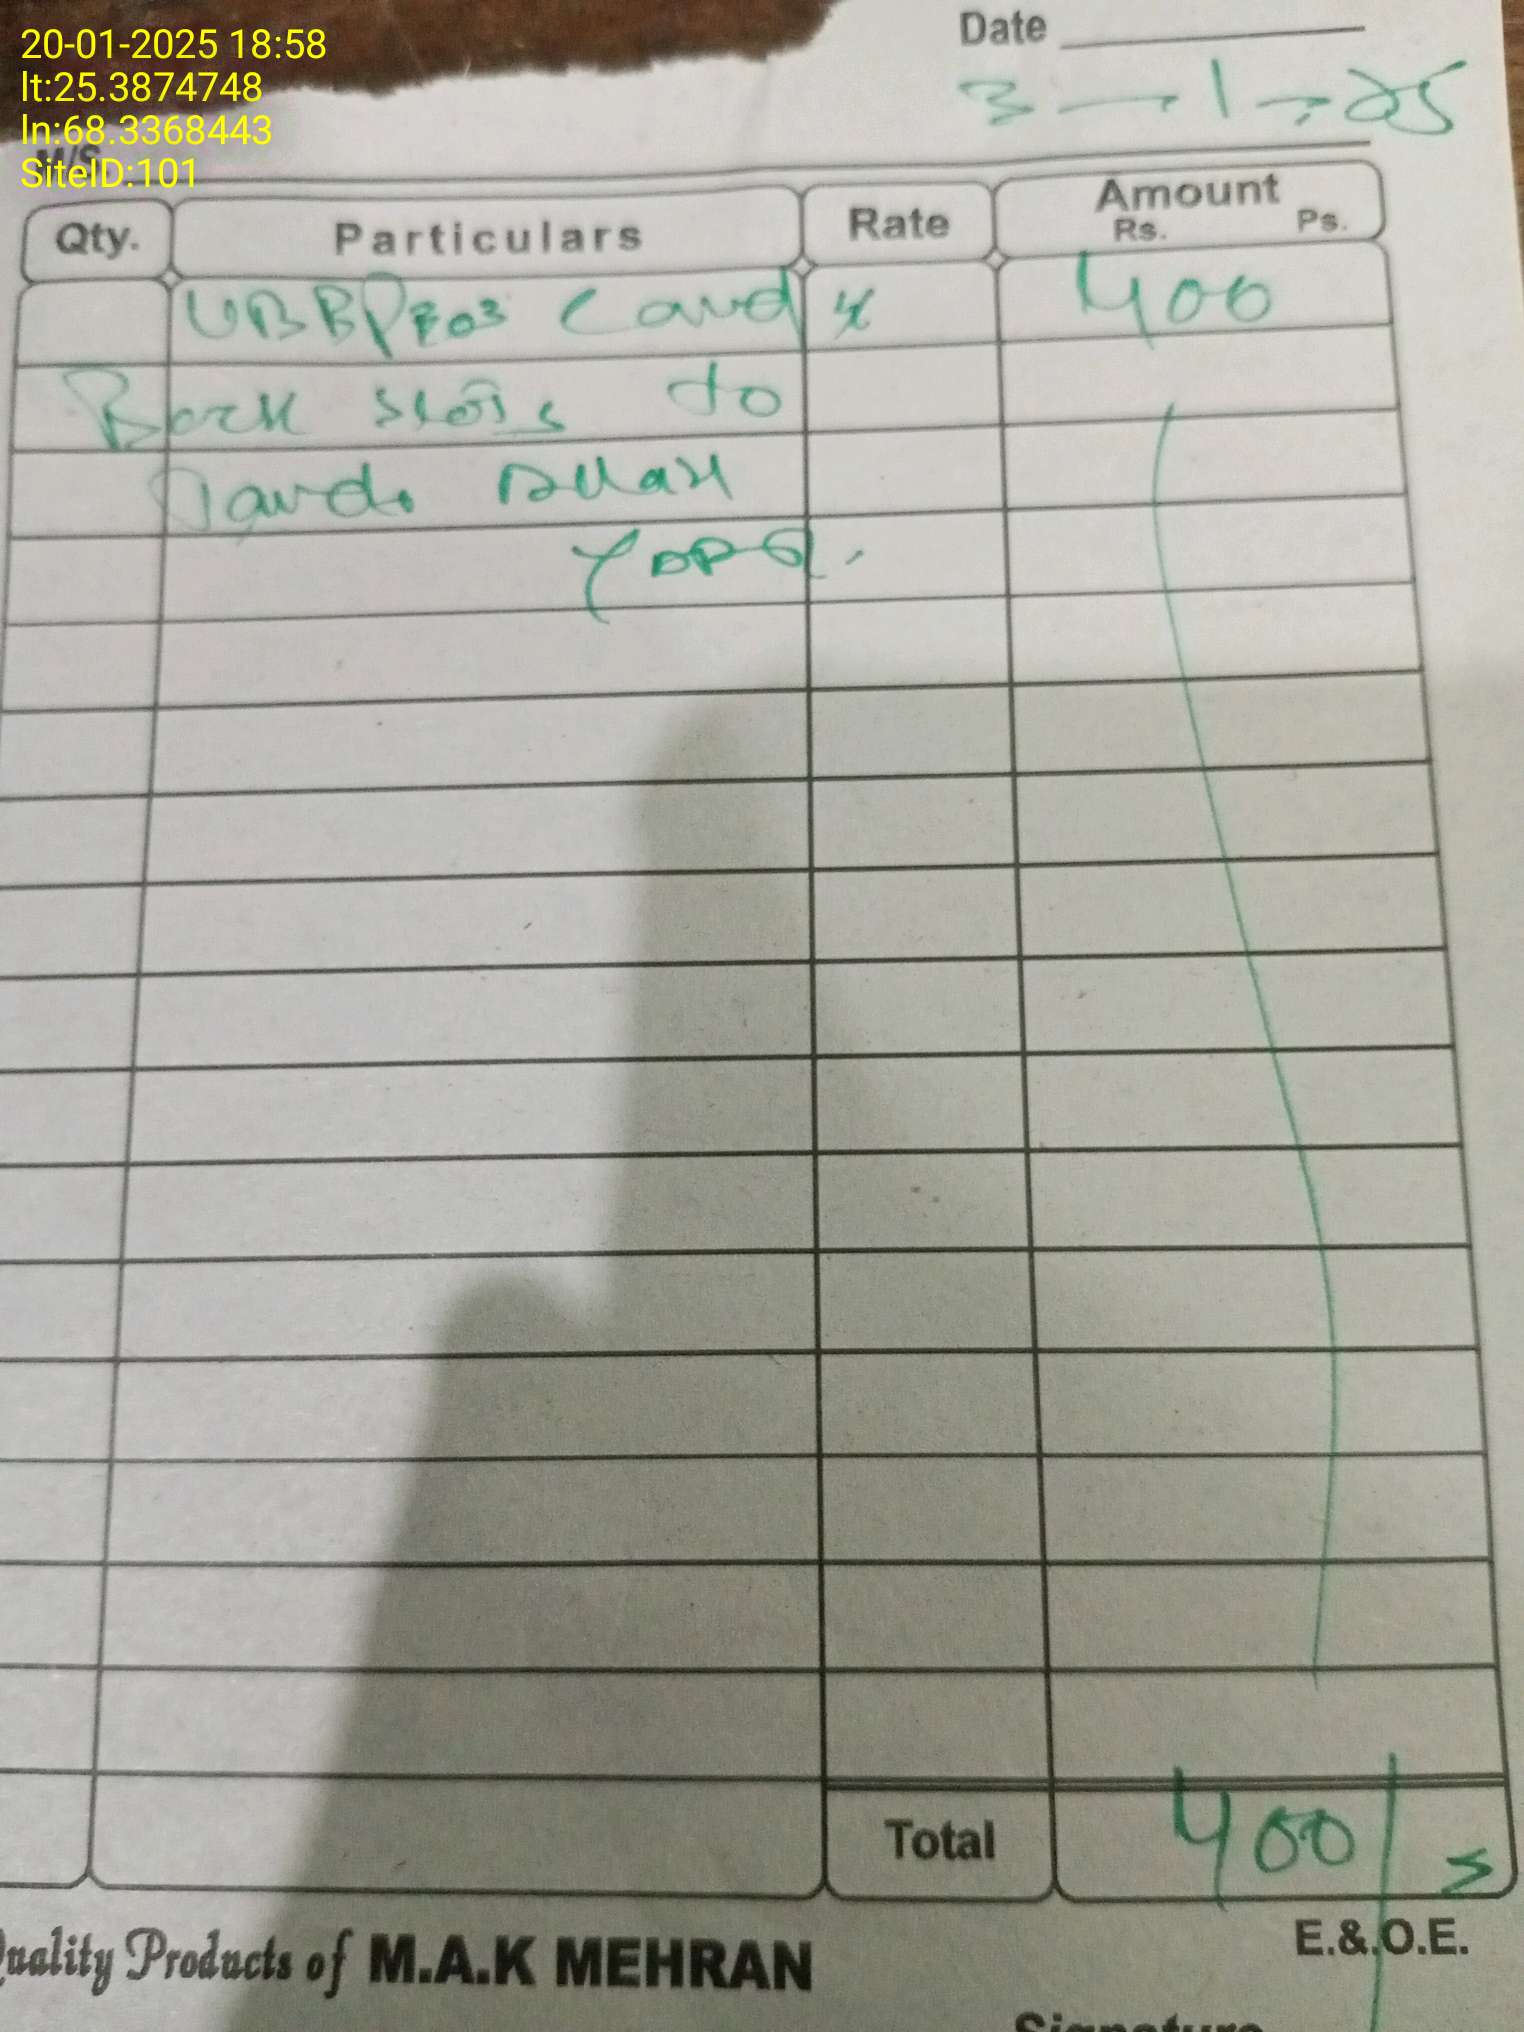 20-01-2025 18:58
lt:25.3874748
ln:68.3368443
SiteID:101
Date
3-1-25
M/S
Qty. Particulars Rate Amount
Rs. Ps.
UBBP card 400
Back to
Allah
Total 400/
E.&.O.E.
Quality Products of M.A.K MEHRAN
Signature